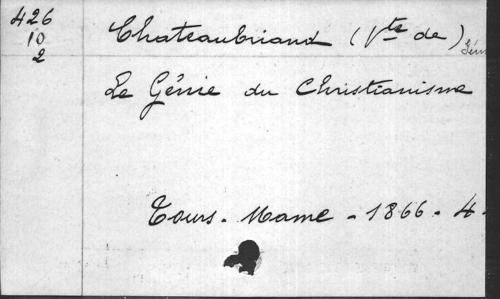 426
10
2
Chateaubriand (Vte de)
Le Génie du Christianisme
Tours. Mame - 1866. 4.